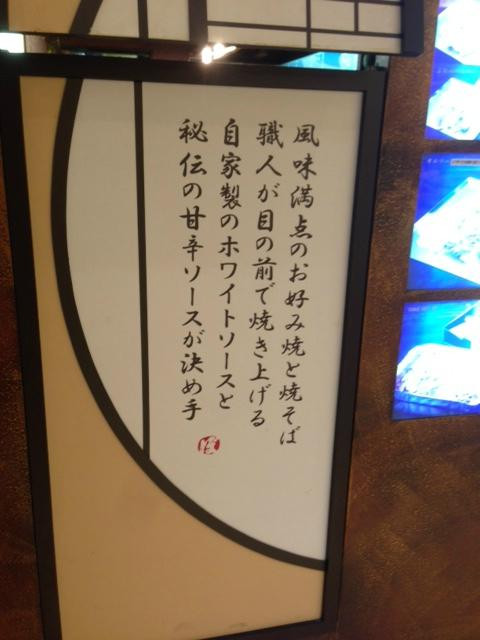 風味満点のお好み焼と焼そば
職人が目の前で焼き上げる
自家製のホワイトソースと
秘伝の甘辛ソースが決め手